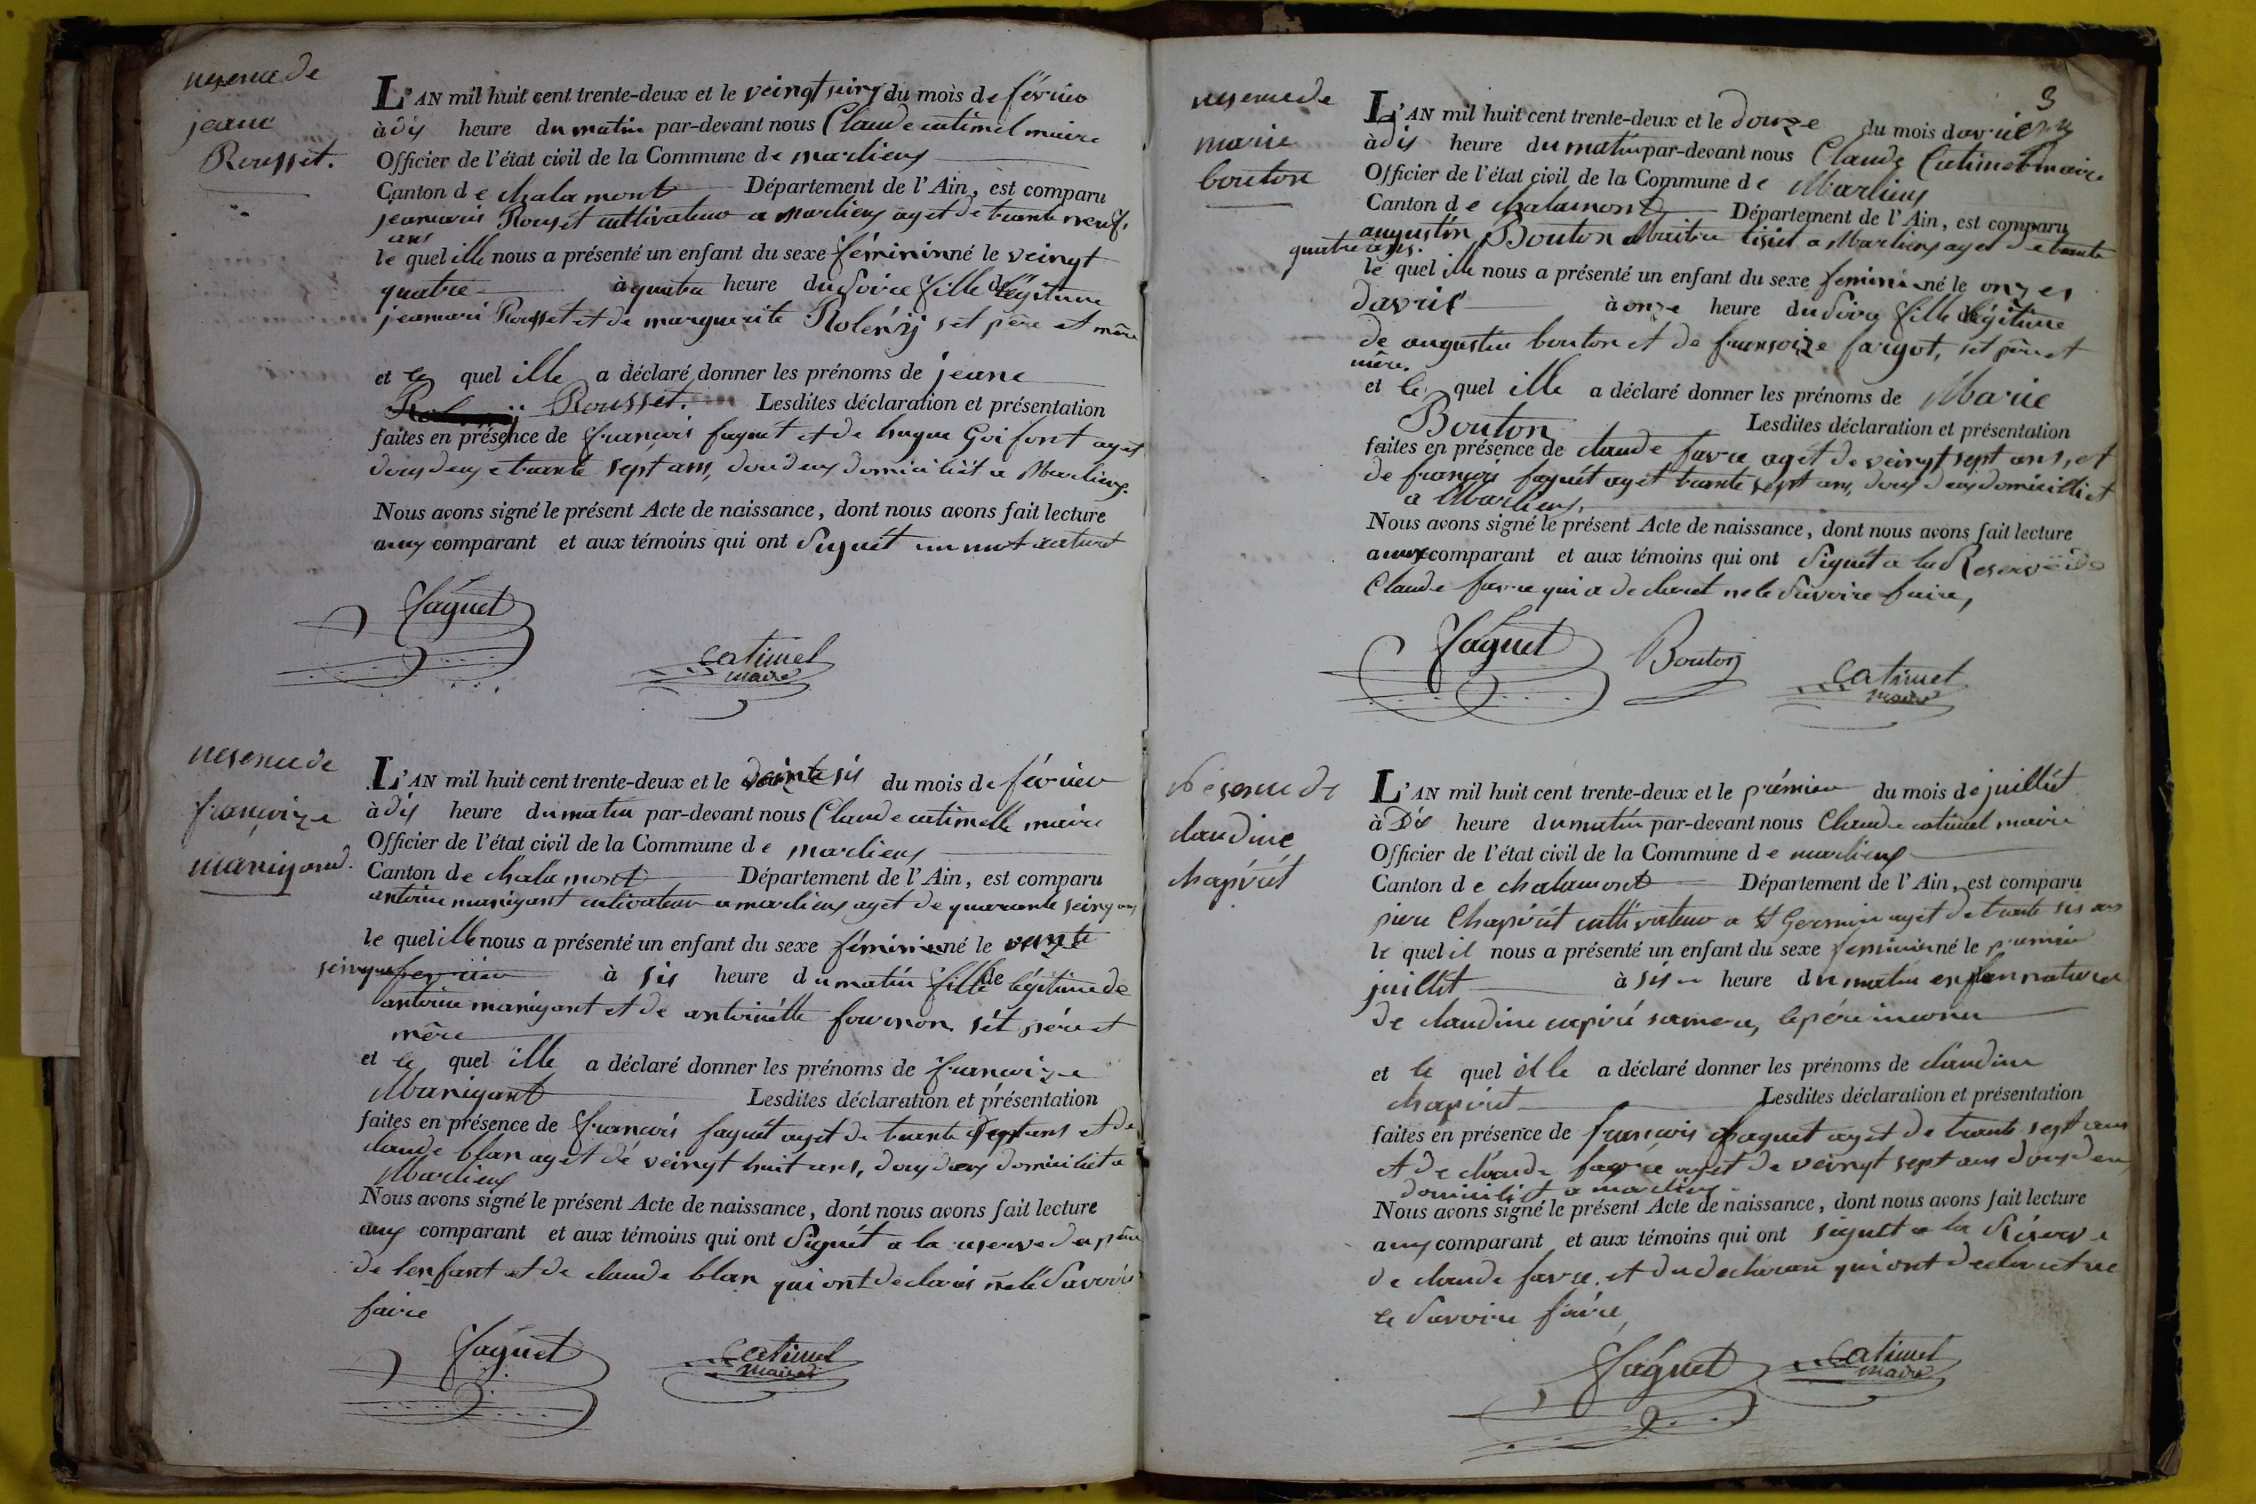 nesence de
jeane
Rousset.
L'AN mil huit cent trente-deux et le veingt seinq du mois de février
à dis heure du matin par-devant nous Claude catimel maire
Officier de l'état civil de la Commune de marlieux
Canton de chalamont Département de l'Ain, est comparu
jeanmarie Rousset cultivateur a marlieux aget de trante neuf
ans
le quel ille nous a présenté un enfant du sexe féminin né le veingt
quatre à quatre heure du soire fille de légitime
jeanmari Rousset et de marguerite Rolénij set père et mère
et le quel ille a déclaré donner les prénoms de jeane
Rousset. Lesdites déclaration et présentation
faites en présence de françois faguet et de hugue Goifont aget
dous deux trante sept ans, dous deux domiciliét a Marlieux.
Nous avons signé le présent Acte de naissance, dont nous avons fait lecture
aux comparant et aux témoins qui ont Signét un mot raturet
faguet
catimel
maire
nesence de
françoize
manigand.
L'AN mil huit cent trente-deux et le veinte sis du mois de février
à dis heure du matin par-devant nous Claude catimelle maire
Officier de l'état civil de la Commune de marlieux
Canton de chalamont Département de l'Ain, est comparu
antoine manigant cultivateur a marlieux aget de quarante seinq ans
le quel ille nous a présenté un enfant du sexe féminin né le veinte
seinque fevrier à sis heure du matin fille de légitime de
antoine manigant et de antoinette fournon sét père et
mère
et le quel ille a déclaré donner les prénoms de françoize
Manigant Lesdites déclaration et présentation
faites en présence de françois faguét aget de trante sept ans et de
claude blan aget dé veingt huit ans, dous deux domiciliet a
Marlieux
Nous avons signé le présent Acte de naissance, dont nous avons fait lecture
aux comparant et aux témoins qui ont Signét a la reserve du père
de lenfant et de claude blan qui ont déclarés ne le Savoir
faire
faguet
catimel
maire
3
nesence de
marie
bouton
L'AN mil huit cent trente-deux et le douze du mois davril
à dis heure du matin par-devant nous Claude Catimel maire
Officier de l'état civil de la Commune de Marlieux
Canton de chalamont Département de l'Ain, est comparu
augustin Bouton Maitre tisié a Marlieux aget de trante
quatre ans.
le quel ille nous a présenté un enfant du sexe feminin né le onzes
davril à onze heure du soire fille de légitime
de augustin bouton et de fransoize fargot, set père et
mère.
et le quel ille a déclaré donner les prénoms de Marie
Bouton Lesdites déclaration et présentation
faites en présence de claude favre agét de veingt sept ans, et
de françois faguét aget trante sept ans, dous deux domicilliet
a Marlieux,
Nous avons signé le présent Acte de naissance, dont nous avons fait lecture
aux comparant et aux témoins qui ont Signét a la Reserve de
Claude favre qui a declaret ne le Savoire faire,
faguet Bouton catimel
maire
Nésence de
claudine
chapirét
L'AN mil huit cent trente-deux et le prémier du mois de juillét
à Dis heure du matin par-devant nous Claude catimel maire
Officier de l'état civil de la Commune de marlieux
Canton de chalamont Département de l'Ain, est comparu
piere Chapirét cultivateur a St Germin aget de trante sis ans
le quel il nous a présenté un enfant du sexe feminin né le premier
juillét à sis heure du matin enfan naturel
de claudine capiré samere, le père inconu
et le quel ille a déclaré donner les prénoms de claudine
chapirét Lesdites déclaration et présentation
faites en présence de francois faguet aget de trante sept ans
et de claude favre aget de veingt sept ans dous deux
domiciliét a marlieux
Nous avons signé le présent Acte de naissance, dont nous avons fait lecture
aux comparant et aux témoins qui ont signét a la Réserve
de claude favre et du declaran qui ont declaret ne
le Savoire faire,
faguet catimel
maire